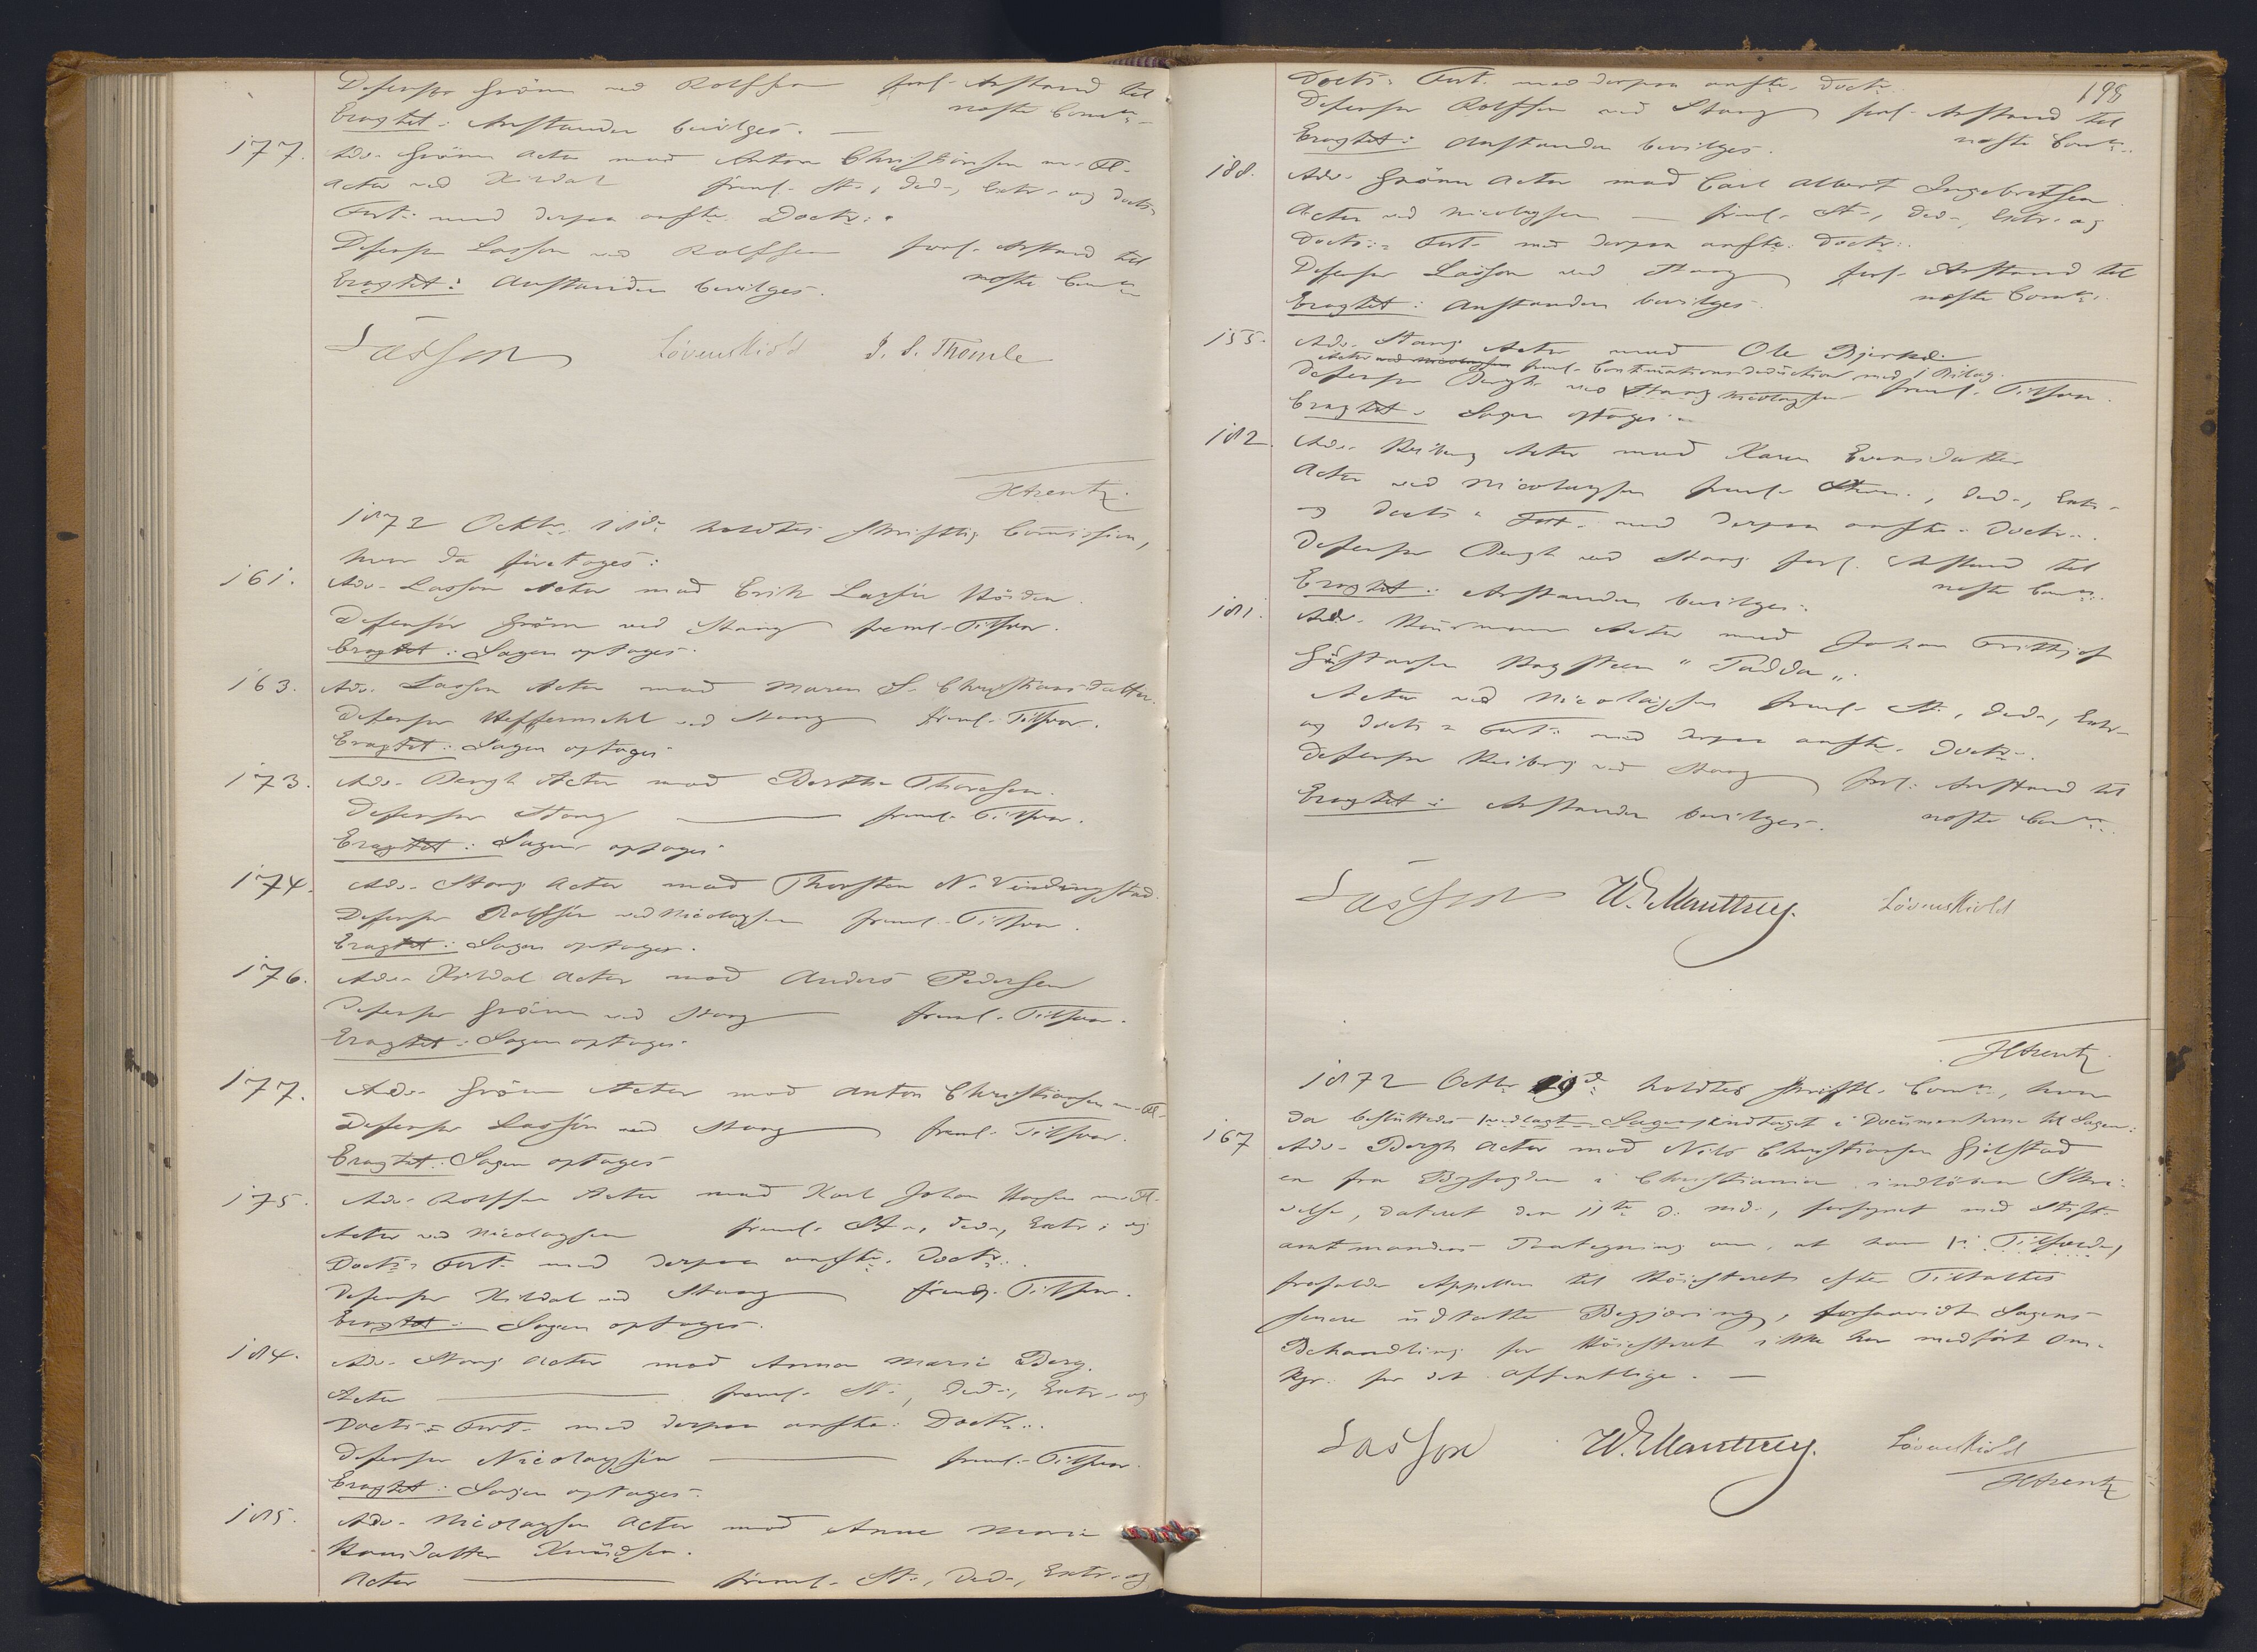 Defensor Grönn ved Rolfsen forl. Anstand til
næste Comm:
Eragtet: Anstanden bevilges.
177. Adv. Grönn Actor mod Anton Christiansen m. Fl.
Actor ved Kildal freml. St., Ded., Extr. og Docts
Fort. med derpaa anfte. Doctr:.
Defensor Lasson ved Rolfsen forl. Anstand til
næste Com
Eragtet: Anstanden bevilges.
Lasson Lövenskiold J. S. Thomle
HArentz.
1872 Octbr 11de holdtes skriftlig Commission,
hvor da foretoges:
161. Adv. Lasson Actor mod Erik Larsen
Defensor Grönn ved Stang freml. Tilsvar.
Eragtet: Sagen optages.
163. Adv. Lasson Actor mod Maren S. Christiansdatter.
Defensor Heffermehl ved Stang freml. Tilsvar.
Eragtet: Sagen optages
173. Adv. Bergh Actor mod Berthe Thoresen.
Defensor Stang freml. Tilsvar.
Eragtet: Sagen optages
174. Adv. Stang Actor mod Thorsten N. Vindingstad.
Defensor Rolfsen ved Nicolaysen freml. Tilsvar.
Eragtet: Sagen optages.
176. Adv. Kildal Actor mod Anders Pedersen
Defensor Grönn ved Stang freml. Tilsvar.
Eragtet: Sagen optages.
177. Adv. Grönn Actor mod Anton Christiansen m. Fl.
Defensor Lasson ved Stang freml. Tilsvar.
Eragtet: Sagen optages
175. Adv. Rolfsen Actor mod Karl Johan Hansen m. Fl.
Actor ved Nicolaysen freml. St., Ded., Extr. og
Docts Fort. med derpaa anfte. Doctr:.
Defensor Kildal ved Stang freml. Tilsvar.
Eragtet: Sagen optages.
184. Adv. Stang Actor mod Anna Marie Berg.
Actor freml. St., Ded., Extr. og
Docts Fort. med derpaa anfte. Doctr:.
Defensor Nicolaysen freml. Tilsvar.
Eragtet: Sagen optages.
185. Adv. Nicolaysen Actor mod Anne Marie
Hansdatter Knudsen.
Actor freml. St., Ded., Extr. og
198
Docts Fort. med derpaa anfte. Doctr.
Defensor Rolfsen ved Stang forl. Anstand til
næste Comm:
Eragtet: Anstanden bevilges.
188. Adv. Grönn Actor mod Carl Albert Ingebretsen
Actor ved Nicolaysen freml. St., Ded., Extr. og
Docts: Fort. med derpaa anfte. Doctr:.
Defensor Lasson ved Stang forl. Anstand til
næste Comm.
Eragtet: Anstanden bevilges.
155. Adv. Stang Actor mod Ole Bjerke.
Actor ved Nicolaysen freml. Continuationsdeduction med 1 Bilag.
Defensor Bergh ved Stang Nicolaysen freml. Tilsvar.
Eragtet: Sagen optages.
182. Adv. Reiberg Actor mod Karen Evensdatter
Actor ved Nicolaysen freml. Stevn., Ded., Extr.
og Docts Fort. med derpaa anfte. Doctr.
Defensor Bergh ved Stang forl. Anstand til
næste Comm:
Eragtet: Anstanden bevilges.
181. Adv. Actor mod Johan Frithjof
Gustavsen "Tadda".
Actor ved Nicolaysen freml. St., Ded., Extr.
og Docts Fort. med derpaa anfte. Doctr.
Defensor Reiberg ved Stang forl. Anstand til
næste Com
Eragtet: Anstanden bevilges.
Lasson W. E. Manthey. Lövenskiold
HArentz.
1872 Octbr 19de holdtes skriftl. Comm, hvor
da besluttedes indtaget i Documenterne til Sagen:
167 Adv. Bergh Actor mod Nils Christiansen Gjelstad
en fra Byfogden i Christiania indlöben Skri-
velse, dateret den 11te d. Md., forsynet med Stift-
amtmandens Paategning om, at han
frafalder Appellen til Höiesteret efter Tiltaltes
senere udtalte Begjæring, forsaavidt Sagens
Behandling for Höiesteret ikke har medfört Om-
kgr. for det Offentlige.
Lasson W. E. Manthey. Lövenskiold
HArentz